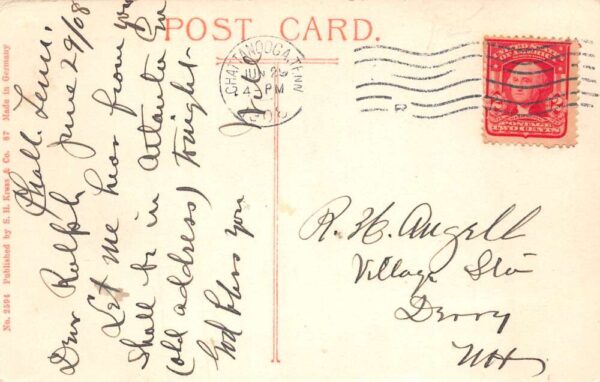 POST CARD.
CHATTANOOGA, TENN.
JUN 29
4 PM
1908
TWO CENTS
Chatt. Tenn.
June 29/08
Dear Ralph
Let me hear from you
Shall be in Atlanta Ga
(old address) tonight -
God bless you
Will
R. H. Angell
Village Sta
Derry
NH
No. 2594 Published by S. H. Kress & Co. 67 Made in Germany